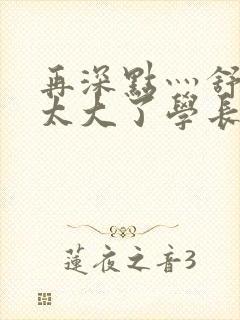 再深點灬舒
太大了學長
蓮夜之音3